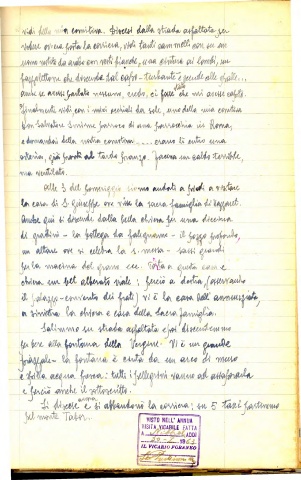 vidi della mia comitiva. Discesi dalla strada asfaltata per
vedere ove era ferma la corriera, vidi tanti cammelli con su un
uomo vestito da arabo con veli bianchi, una cintura ai lombi, un
fazzolettone che discende dal capo - turbante e scende alle spalle...
anche se avessi parlato nessuno, credo, ci fosse stato che mi avesse capito.
Finalmente vidi con i vetri occhiali da sole, uno della mia comitiva
Don Salvatore parroco di una parrocchia in Roma,
e domandai della nostra comitiva..... erano lì entro una
osteria, già pronti al tardo pranzo. Faceva un caldo terribile,
ma ventilato.
Alle 3 del pomeriggio siamo andati a piedi a visitare
la casa di S. Giuseppe ove visse la sacra famiglia di Nazaret.
Anche qui si discende dalla bella chiesa per una diecina
di gradini - la bottega da falegname - il pozzo profondo,
un altare ove si celebra la s. messa - sassi grandi
per la macina del grano ecc. Porta a questa casa e
chiesa un bel alberato viale: perciò a destra, (osservando
il palazzo-convento dei frati) vi è la casa dell'annunziata,
a sinistra la chiesa e casa della Sacra famiglia.
Salimmo su strada asfaltata e poi discendemmo
su fino alla fontana della Vergine. Vi è un grande
piazzale - la fontana è coperta da un arco di muro
e dell'acqua fresca: tutti i pellegrini vanno ad assaporarla
e perciò anche il sottoscritto.
Si discese ancora e si abbandonò la corriera: su 5 taxi partimmo
pel monte Tabor...
VISTO NELL' ANNUA
VISITA VICARILE FATTA
A ADDÌ
IL VICARIO FORANEO